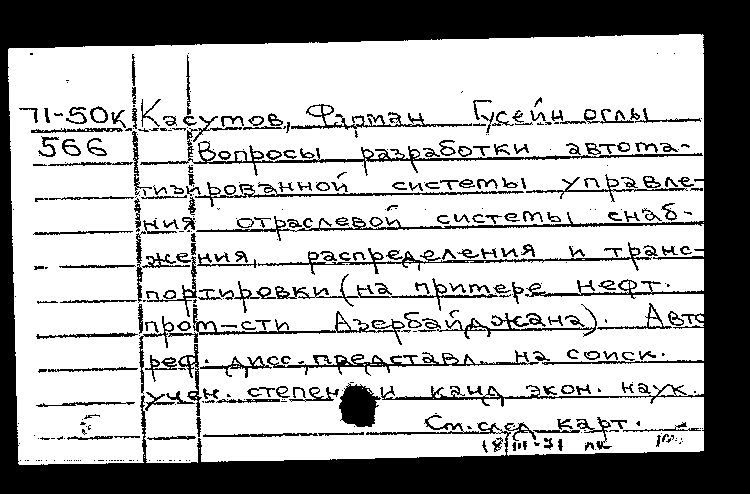 71-50к Касумов, Фарман Гусейн оглы
566 Вопросы разработки автома-
тизированной системы управле-
ния отраслевой системы снаб-
жения, распределения и транс-
портировки (на примере нефт.
пром-сти Азербайджана). Авто
реф. дисс., представл. на соиск.
учен. степени канд экон. наук.
б См. след карт.
18/III-71 лк